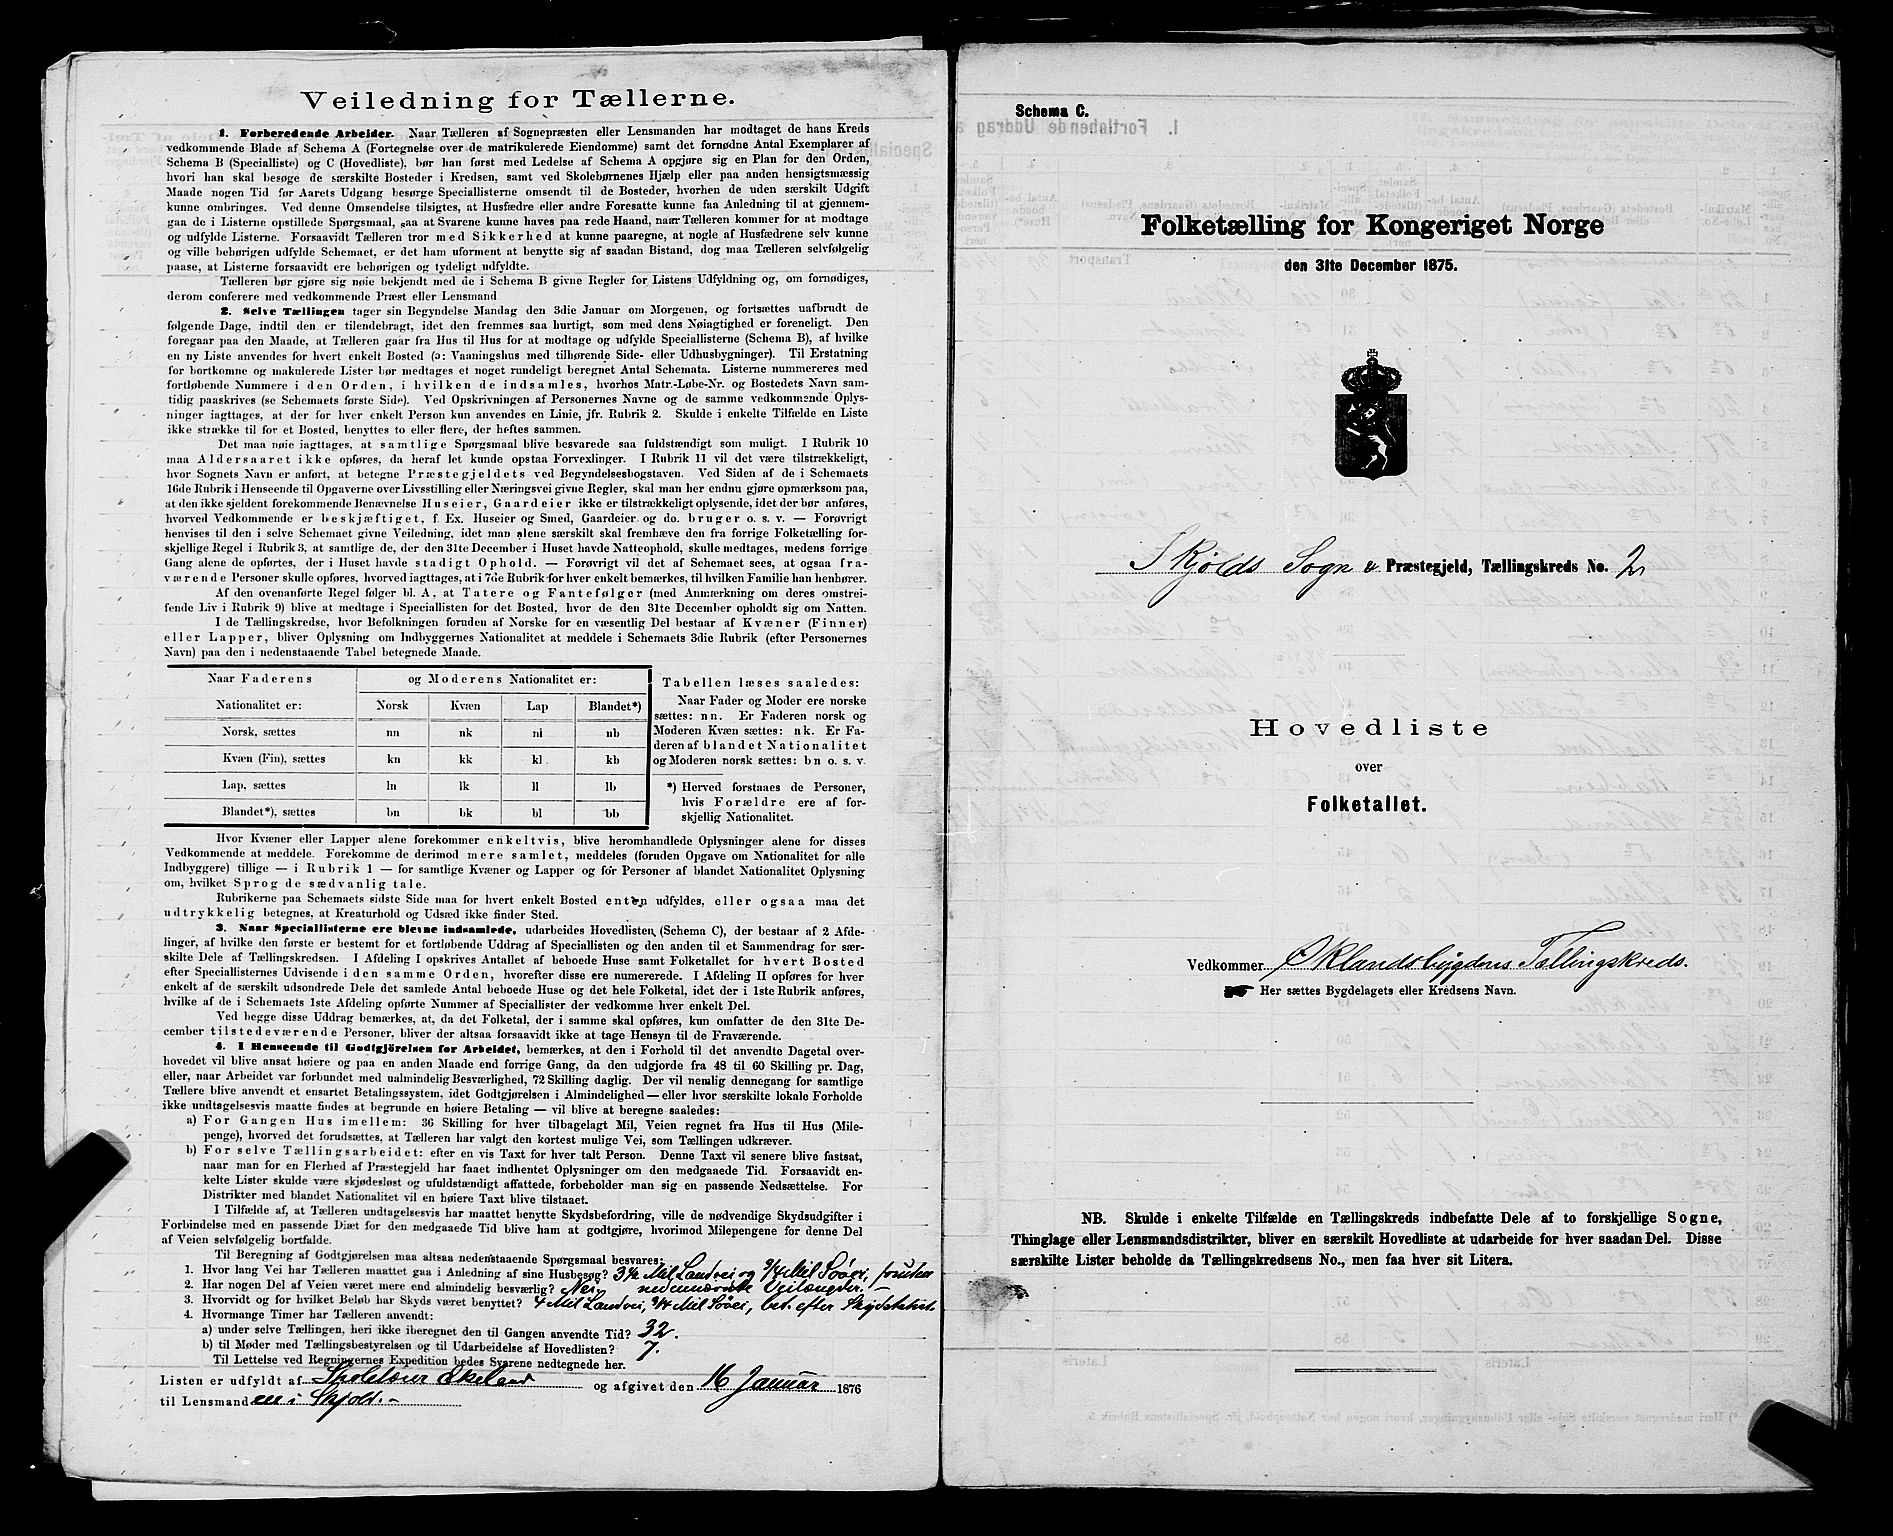 Veiledning for Tællerne.
1. Forberedende Arbeider. Naar Tælleren af Sognepræsten eller Lensmanden har modtaget de hans Kreds
vedkommende Blade af Schema A (Fortegnelse over de matrikulerede Eiendomme) samt det fornødne Antal Exemplarer af
Schema B (Specialliste) og C (Hovedliste), bør han først med Ledelse af Schema A opgjøre sig en Plan for den Orden,
hvori han skal besøge de særskilte Bosteder i Kredsen, samt ved Skolebørnenes Hjælp eller paa anden hensigtsmæssig
Maade nogen Tid før Aarets Udgang besørge Speciallisterne omsendt til de Bosteder, hvorhen de uden særskilt Udgift
kunne ombringes. Ved denne Omsendelse tilsigtes, at Husfædre eller andre Foresatte kunne faa Anledning til at gjennem-
gaa de i Listerne opstillede Spørgsmaal, saa at Svarene kunne haves paa rede Haand, naar Tælleren kommer for at modtage
og udfylde Listerne. Forsaavidt Tælleren tror med Sikkerhed at kunne paaregne, at nogle af Husfædrene selv kunne
og ville behørigen udfylde Schemaet, er det ham uforment at benytte sig af saadan Bistand, dog maa Tælleren selvfølgelig
paase, at Listerne forsaavidt ere behørigen og tydeligt udfyldte.
Tælleren bør gjøre sig nøie bekjendt med de i Schema B givne Regler for Listens Udfyldning og, om fornødiges,
derom conferere med vedkommende Præst eller Lensmand
2. Selve Tællingen tager sin Begyndelse Mandag den 3die Januar om Morgenen, og fortsættes uafbrudt de
følgende Dage, indtil den er tilendebragt, idet den fremmes saa hurtigt, som med dens Nøiagtighed er foreneligt. Den
foregaar paa den Maade, at Tælleren gaar fra Hus til Hus for at modtage og udfylde Speciallisterne (Schema B), af hvilke
en ny Liste anvendes for hvert enkelt Bosted (ɔ: Vaaningshus med tilhørende Side- eller Udhusbygninger). Til Erstatning
for bortkomne og makulerede Lister bør medtages et noget rundeligt beregnet Antal Schemata. Listerne nummereres med
fortløbende Nummere i den Orden, i hvilken de indsamles, hvorhos Matr.-Løbe-Nr. og Bostedets Navn sam-
tidig paaskrives (se Schemaets første Side). Ved Opskrivningen af Personernes Navne og de samme vedkommende Oplys-
ninger iagttages, at der for hver enkelt Person kun anvendes en Linie, jfr. Rubrik 2. Skulde i enkelte Tilfælde en Liste
ikke strække til for et Bosted, benyttes to eller flere, der heftes sammen.
Det maa nøie iagttages, at samtlige Spørgsmaal blive besvarede saa fuldstændigt som muligt. I Rubrik 10
maa Aldersaaret ikke opføres, da heraf let kunde opstaa Forvexlinger. I Rubrik 11 vil det være tilstrækkeligt,
hvor Sognets Navn er anført, at betegne Præstegjeldets ved Begyndelsesbogstaven. Ved Siden af de i Schemaets
16de Rubrik i Henseende til Opgaverne over Livsstilling eller Næringsvei givne Regler, skal man her endnu gjøre opmærksom paa,
at den ikke sjeldent forekommende Benævnelse Huseier, Gaardeier ikke er tilstrækkeligt oplysende, idet der bør anføres,
hvorved Vedkommende er beskjæftiget, f. Ex. Huseier og Smed, Gaardeier og do. bruger o. s. v. — Forøvrigt
henvises til den i selve Schemaet givne Veiledning, idet man alene særskilt skal fremhæve den fra forrige Folketælling for-
skjellige Regel i Rubrik 3, at samtlige de, der den 31te December i Huset havde Natteophold, skulle medtages, medens forrige
Gang alene de opførtes, der i Huset havde stadigt Ophold. — Forøvrigt vil det af Schemaet sees, at ogsaa fra-
værende Personer skulle opføres, hvorved iagttages, at i 7de Rubrik for hver enkelt bemærkes, til hvilken Familie han henhører.
Af den ovenanførte Regel følger bl. A, at Tatere og Fantefølger (med Anmærkning om deres omstrei-
fende Liv i Rubrik 9) blive at medtage i Speciallisten for det Bosted, hvor de den 31te December opholdt sig om Natten.
I de Tællingskredse, hvor Befolkningen foruden af Norske for en væsentlig Del bestaar af Kvæner (Finner)
eller Lapper, bliver Oplysning om Indbyggernes Nationalitet at meddele i Schemaets 3die Rubrik (efter Personernes
Navn) paa den i nedenstaaende Tabel betegnede Maade.
Naar Faderens og Moderens Nationalitet er:
Nationalitet er: Norsk Kvæn Lap Blandet*)
Norsk, sættes nn nk nl nb
Kvæn (Fin), sættes kn kk kl kb
Lap, sættes ln lk ll lb
Blandet*), sættes bn bk bl bb
Tabellen læses saaledes:
Naar Fader og Moder ere norske
sættes: nn. Er Faderen norsk og
Moderen Kvæn sættes: nk. Er Fa-
deren af blandet Nationalitet
og Moderen norsk sættes: bn o. s. v.
*) Herved forstaaes de Personer,
hvis Forældre ere af for-
skjellig Nationalitet.
Hvor Kvæner eller Lapper alene forekommer enkeltvis, blive heromhandlede Oplysninger alene for disses
Vedkommende at meddele. Forekomme de derimod mere samlet, meddeles (foruden Opgave om Nationalitet for alle
Indbyggere) tillige — i Rubrik 1 — for samtlige Kvæner og Lapper og for Personer af blandet Nationalitet Oplysning
om, hvilket Sprog de sædvanlig tale.
Rubrikerne paa Schemaets sidste Side maa for hvert enkelt Bosted enten udfyldes, eller ogsaa maa det
udtrykkelig betegnes, at Kreaturhold og Udsæd ikke finder Sted.
3. Naar Speciallisterne ere blevne indsamlede, udarbeides Hovedlisten (Schema C), der bestaar af 2 Afde-
linger, af hvilke den første er bestemt for et fortløbende Uddrag af Speciallisten og den anden til et Sammendrag for sær-
skilte Dele af Tællingskredsen. I Afdeling I opskrives Antallet af beboede Huse samt Folketallet for hvert Bosted
efter Speciallisternes Udvisende i den samme Orden, hvorefter disse ere numererede. I Afdeling II opføres for hver
enkelt af de særskilt udsondrede Dele det samlede Antal beboede Huse og det hele Folketal, idet der i 1ste Rubrik anføres,
hvilke af de i Schemaets 1ste Afdeling opførte Nummer af Speciallister der vedkomme hver enkelt Del.
Ved begge disse Uddrag bemærkes, at, da det Folketal, der i samme skal opføres, kun omfatter de den 31te De-
cember tilstedeværende Personer, bliver der altsaa forsaavidt ikke at tage Hensyn til de Fraværende.
4. I Henseende til Godtgjörelsen for Arbeidet, bemærkes, at den i Forhold til det anvendte Dagetal over-
hovedet vil blive ansat høiere og paa en anden Maade end forrige Gang, da den udgjorde fra 48 til 60 Skilling pr. Dag,
eller, naar Arbeidet var forbundet med ualmindelig Besværlighed, 72 Skilling daglig. Der vil nemlig dennegang for samtlige
Tællere blive anvendt et ensartet Betalingssystem, idet Godtgjørelsen i Almindelighed — eller hvor særskilte lokale Forholde
ikke undtagelsesvis maatte findes at begrunde en høiere Betaling — vil blive at beregne saaledes:
a) For Gangen Hus imellem: 36 Skilling for hver tilbagelagt Mil, Veien regnet fra Hus til Hus (Mile-
penge), hvorved det forudsættes, at Tælleren har valgt den kortest mulige Vei, som Tællingen udkræver.
b) For selve Tællingsarbeidet: efter en vis Taxt for hver talt Person. Denne Taxt vil senere blive fastsat,
naar man for en Flerhed af Præstegjeld har faaet indhentet Oplysninger om den medgaaede Tid. Forsaavidt en-
kelte Lister skulde være skjødesløst og ufuldstændigt affattede, forbeholder man sig en passende Nedsættelse. For
Distrikter med blandet Nationalitet vil en høiere Taxt blive tilstaaet.
I Tilfælde af, at Tælleren undtagelsesvis har maattet benytte Skydsbefordring, ville de nødvendige Skydsudgifter i
Forbindelse med en passende Diæt for den medgaaede Tid blive ham at godtgjøre, hvorimod Milepengene for denne Del
af Veien selvfølgelig bortfalde.
Til Beregning af Godtgjørelsen maa altsaa nedenstaaende Spørgsmaal besvares:
1. Hvor lang Vei har Tælleren maattet gaa i Anledning af sine Husbesøg? 3½ Mil Landvei og 3/4 Mil Søvei, foruden
2. Har nogen Del af Veien været mere end almindelig besværlig? Nei. nedennævnte Veilængder. —
3. Hvorvidt og for hvilket Beløb har Skyds været benyttet? 4 Mil Landvei, 3/4 Mil Søvei, bet. efter Skydstaxt.
4. Hvormange Timer har Tælleren anvendt:
a) under selve Tællingen, heri ikke iberegnet den til Gangen anvendte Tid? 32.
b) til Møder med Tællingsbestyrelsen og til Udarbeidelse af Hovedlisten? 7.
Til Lettelse ved Regningernes Expedition bedes Svarene nedtegnede her.
Listen er udfyldt af Skolelærer Ekeland og afgivet den 16 Januar 1876
til Lensmanden i Skjold. –
Schema C.
Folketælling for Kongeriget Norge
den 31te December 1875.
Skjolds Sogn & Præstegjeld, Tællingskreds No. 2
Hovedliste
over
Folketallet.
Vedkommer Øklandsbygdens Tællingskreds.
Her sættes Bygdelagets eller Kredsens Navn.
NB. Skulde i enkelte Tilfælde en Tællingskreds indbefatte Dele af to forskjellige Sogne,
Thinglage eller Lensmandsdistrikter, bliver en særskilt Hovedliste at udarbeide for hver saadan Del. Disse
særskilte Lister beholde da Tællingskredsens No., men faa hver sit Litera.